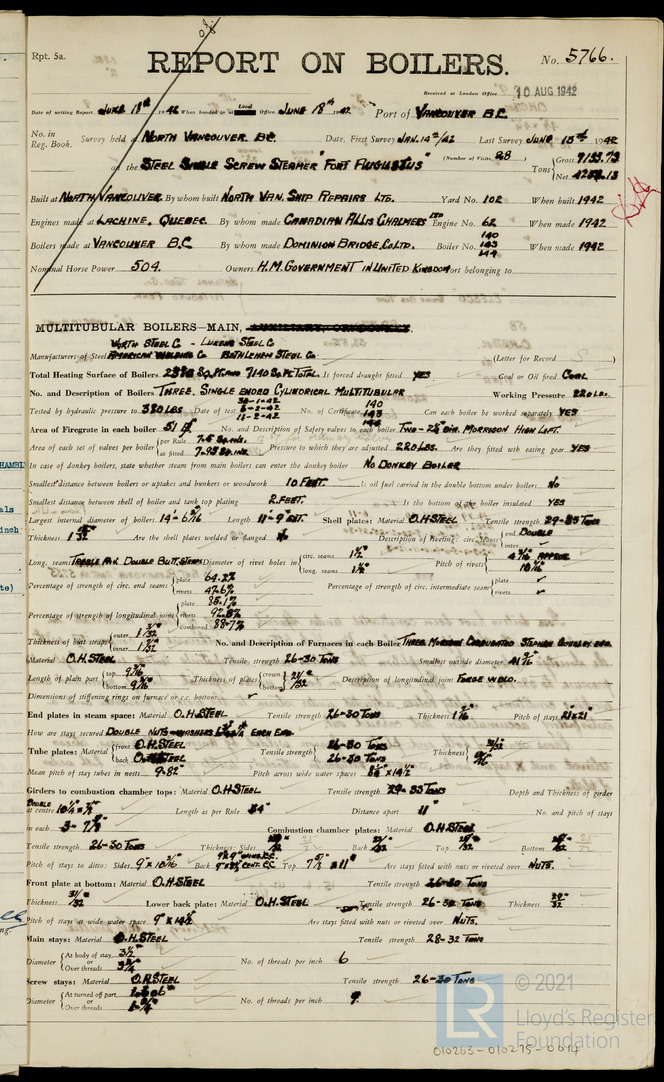 Rpt. 5a.
REPORT ON BOILERS.
No. 5766.
Received at London Office 10 AUG 1942
Date of writing Report JUNE 18th 1942 When handed in at Local Office JUNE 18th 1942 Port of VANCOUVER B.C.
No. in Reg. Book. Survey held at NORTH VANCOUVER BC. Date, First Survey JAN. 14th/42 Last Survey JUNE 1942
on the STEEL SINGLE SCREW STEAMER "FORT (Number of Visits 28 Tons Gross 7133.73 Net
Built at NORTH VANCOUVER By whom built NORTH VAN. SHIP REPAIRS LTD. Yard No. 102 When built 1942
Engines made at LACHINE, QUEBEC. By whom made CANADIAN ALLIS CHALMERS LTD Engine No. 62 When made 1942
Boilers made at VANCOUVER B.C By whom made DOMINION BRIDGE Co LTD. Boiler No. 140 143 144 When made 1942
Nominal Horse Power 504. Owners H.M. GOVERNMENT IN UNITED KINGDOM Port belonging to
MULTITUBULAR BOILERS—MAIN,
WORTH STEEL Co - LUKENS STEEL Co
Manufacturers of Steel BETHLEHEM STEEL Co (Letter for Record S )
Total Heating Surface of Boilers 7140 SQ.FT. TOTAL. Is forced draught fitted YES Coal or Oil fired COAL
No. and Description of Boilers THREE. SINGLE ENDED CYLINDRICAL MULTITUBULAR Working Pressure 220 LBS.
Tested by hydraulic pressure to 380 LBS Date of test 30-1-42 6-2-42 11-2-42 No. of Certificate 140 143 144 Can each boiler be worked separately YES
Area of Firegrate in each boiler 51 No. and Description of Safety valves to each boiler TWO - 2½" DIA. MORRISON HIGH LIFT.
Area of each set of valves per boiler per Rule 7.5 SQ.INS. as fitted 7.95 SQ.INS Pressure to which they are adjusted 220 LBS. Are they fitted with easing gear YES
In case of donkey boilers, state whether steam from main boilers can enter the donkey boiler NO DONKEY BOILER
Smallest distance between boilers or uptakes and bunkers or woodwork 10 FEET. Is oil fuel carried in the double bottom under boilers NO
Smallest distance between shell of boiler and tank top plating 2 FEET. Is the bottom of the boiler insulated YES
Largest internal diameter of boilers Length 11'-9" EXT. Shell plates: Material O.H STEEL Tensile strength 29-33 TONS
Thickness Are the shell plates welded or flanged Description of riveting: circ. seams end DOUBLE inter
Long. seams TREBLE RIV. DOUBLE BUTT. STRAPS Diameter of rivet holes in circ. seams 1½" long. seams 1½" Pitch of rivets APPROX.
Percentage of strength of circ. end seams plate 64.2% rivets 47.6% Percentage of strength of circ. intermediate seam plate rivets
Percentage of strength of longitudinal joint plate 85.1% rivets combined 88.7%
Thickness of butt straps outer inner No. and Description of Furnaces in each Boiler THREE MORISON CORRUGATED
Material O.H STEEL Tensile strength 26-30 TONS Smallest outside diameter
Length of plain part top bottom Thickness of plates crown bottom Description of longitudinal joint FORGE WELD.
Dimensions of stiffening rings on furnace or c.c. bottom
End plates in steam space: Material O.H STEEL Tensile strength 26-30 TONS Thickness Pitch of stays 21"x21"
How are stays secured DOUBLE NUTS - WASHERS EACH END
Tube plates: Material front O.H STEEL back O.H STEEL Tensile strength 26-30 TONS 26-30 TONS Thickness
Mean pitch of stay tubes in nests 9.82" Pitch across wide water spaces
Girders to combustion chamber tops: Material O.H STEEL Tensile strength 29-33 TONS Depth and Thickness of girder
at centre DOUBLE Length as per Rule 34" Distance apart 11" No. and pitch of stays
in each Combustion chamber plates: Material O.H STEEL
Tensile strength 26-30 TONS Thickness: Sides Back Top Bottom
Pitch of stays to ditto: Sides Back Top Are stays fitted with nuts or riveted over NUTS.
Front plate at bottom: Material O.H STEEL Tensile strength 26-30 TONS
Thickness Lower back plate: Material O.H STEEL Tensile strength 26-30 TONS Thickness
Pitch of stays at wide water space Are stays fitted with nuts or riveted over NUTS.
Main stays: Material O.H STEEL Tensile strength 28-32 TONS
Diameter At body of stay, or Over threads No. of threads per inch 6
Screw stays: Material O.H. STEEL Tensile strength 26-30 TONS
Diameter At turned off part, or Over threads No. of threads per inch 9
© 2021
LR
Lloyd's Register
Foundation
010263-010275-0014